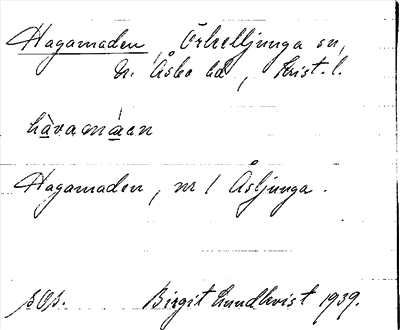 Hagamaden, Örkelljunga sn,
N. Åsbo hd, Krist. l.
hàvamáen
Hagamaden, nr 1 Åsljunga.
Birgit Lundkvist 1939.